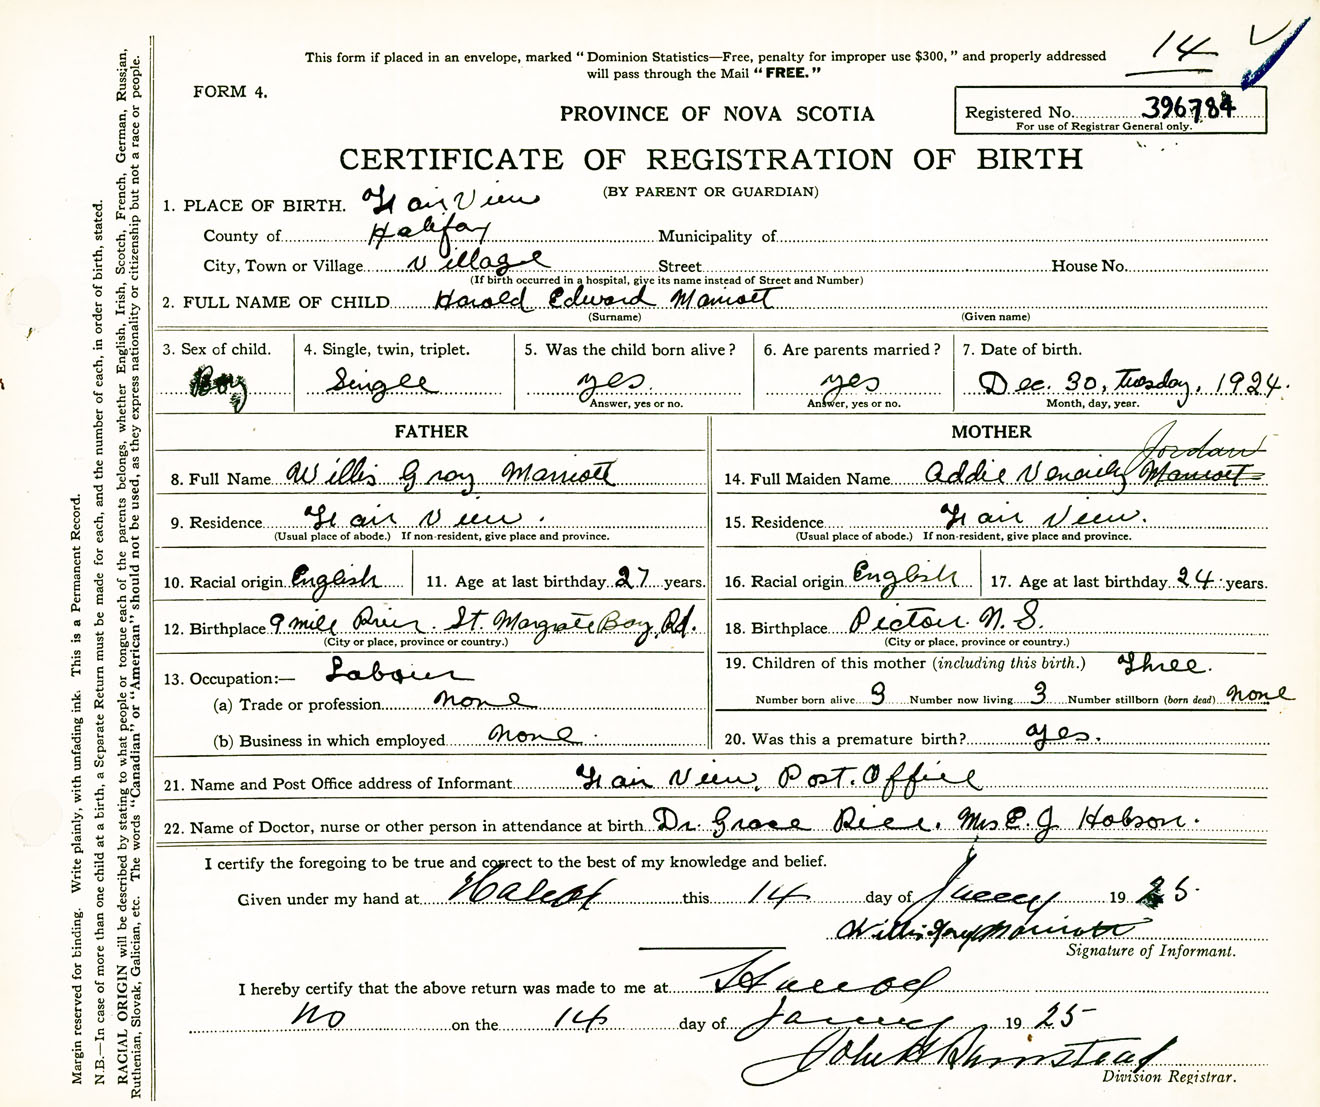 14
This form if placed in an envelope, marked "Dominion Statistics—Free, penalty for improper use $300," and properly addressed
will pass through the Mail "FREE."
FORM 4.
PROVINCE OF NOVA SCOTIA
Registered No. 396784
For use of Registrar General only.
CERTIFICATE OF REGISTRATION OF BIRTH
(BY PARENT OR GUARDIAN)
1. PLACE OF BIRTH. Fair View
County of Halifax Municipality of
City, Town or Village Village Street House No.
(If birth occurred in a hospital, give its name instead of Street and Number)
2. FULL NAME OF CHILD Harold Edward Marriott
(Surname) (Given name)
3. Sex of child. 4. Single, twin, triplet. 5. Was the child born alive? 6. Are parents married? 7. Date of birth.
Boy Single yes. yes Dec. 30, Tuesday, 1924.
Answer, yes or no. Answer, yes or no. Month, day, year.
FATHER
8. Full Name Willis Gray Marriott
9. Residence Fair View.
(Usual place of abode.) If non-resident, give place and province.
10. Racial origin English 11. Age at last birthday 27 years.
12. Birthplace 9 mile River. St. Margrete Bay Rd.
(City or place, province or country.)
13. Occupation:— Labour
(a) Trade or profession none
(b) Business in which employed none.
MOTHER
Jordan
14. Full Maiden Name Addie Marriott
15. Residence Fair View.
(Usual place of abode.) If non-resident, give place and province.
16. Racial origin English 17. Age at last birthday 24 years.
18. Birthplace Pictou N. S.
(City or place, province or country.)
19. Children of this mother (including this birth.) Three.
Number born alive 3 Number now living 3 Number stillborn (born dead) none
20. Was this a premature birth? yes.
21. Name and Post Office address of Informant Fair View, Post. Office
22. Name of Doctor, nurse or other person in attendance at birth Dr. Grace Rice. Mrs E. J Hobson.
I certify the foregoing to be true and correct to the best of my knowledge and belief.
Given under my hand at this 14 day of 19 25
Willis Gray Marriott
Signature of Informant.
I hereby certify that the above return was made to me at
on the 14 day of 19 25
Division Registrar.
Margin reserved for binding. Write plainly, with unfading ink. This is a Permanent Record.
N.B.—In case of more than one child at a birth, a Separate Return must be made for each, and the number of each, in order of birth, stated.
RACIAL ORIGIN will be described by stating to what people or tongue each of the parents belongs, whether English, Irish, Scotch, French, German, Russian,
Ruthenian, Slovak, Galician, etc. The words "Canadian" or "American" should not be used, as they express nationality or citizenship but not a race or people.